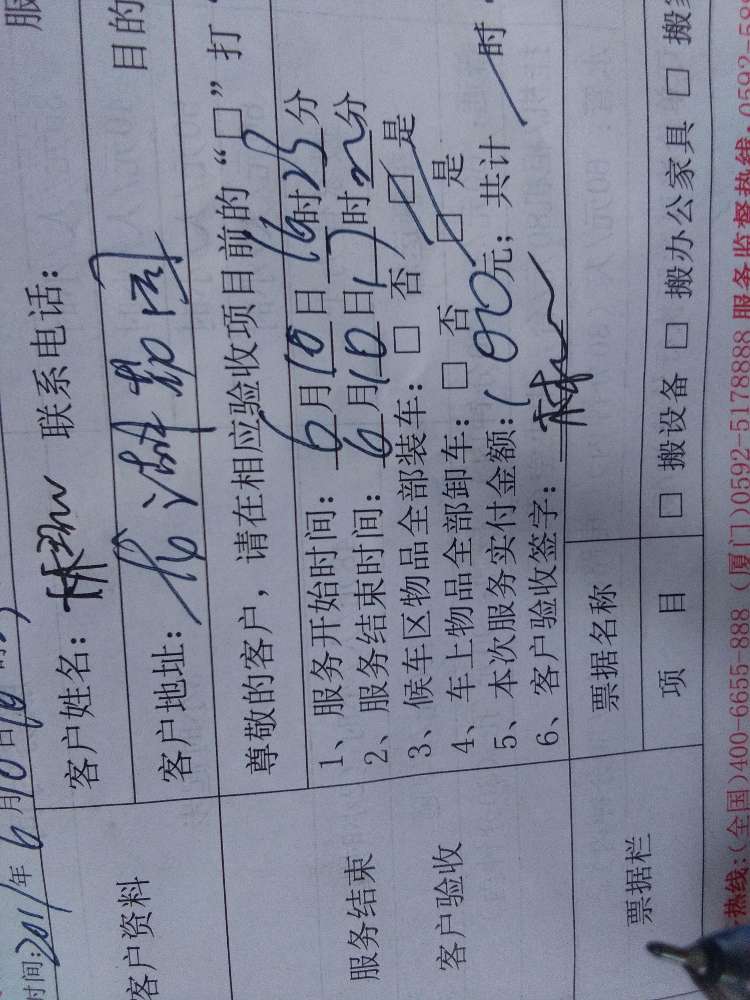 时间:2011年6月10日
客户资料
客户姓名: 林 联系电话:
客户地址:
目的
服务结束
客户验收
尊敬的客户，请在相应验收项目前的“□”打
1、服务开始时间: 6月10日16时25分
2、服务结束时间: 6月10日17时 分
3、候车区物品全部装车: □ 否 □ 是
4、车上物品全部卸车: □ 否 □ 是
5、本次服务实付金额: 100元; 共计 时
6、客户验收签字:
票据栏
票据名称
项 目
□ 搬设备 □ 搬办公家具 □ 搬
热线:(全国)400-6655-888 (厦门)0592-5178888 服务监督热线:0592-